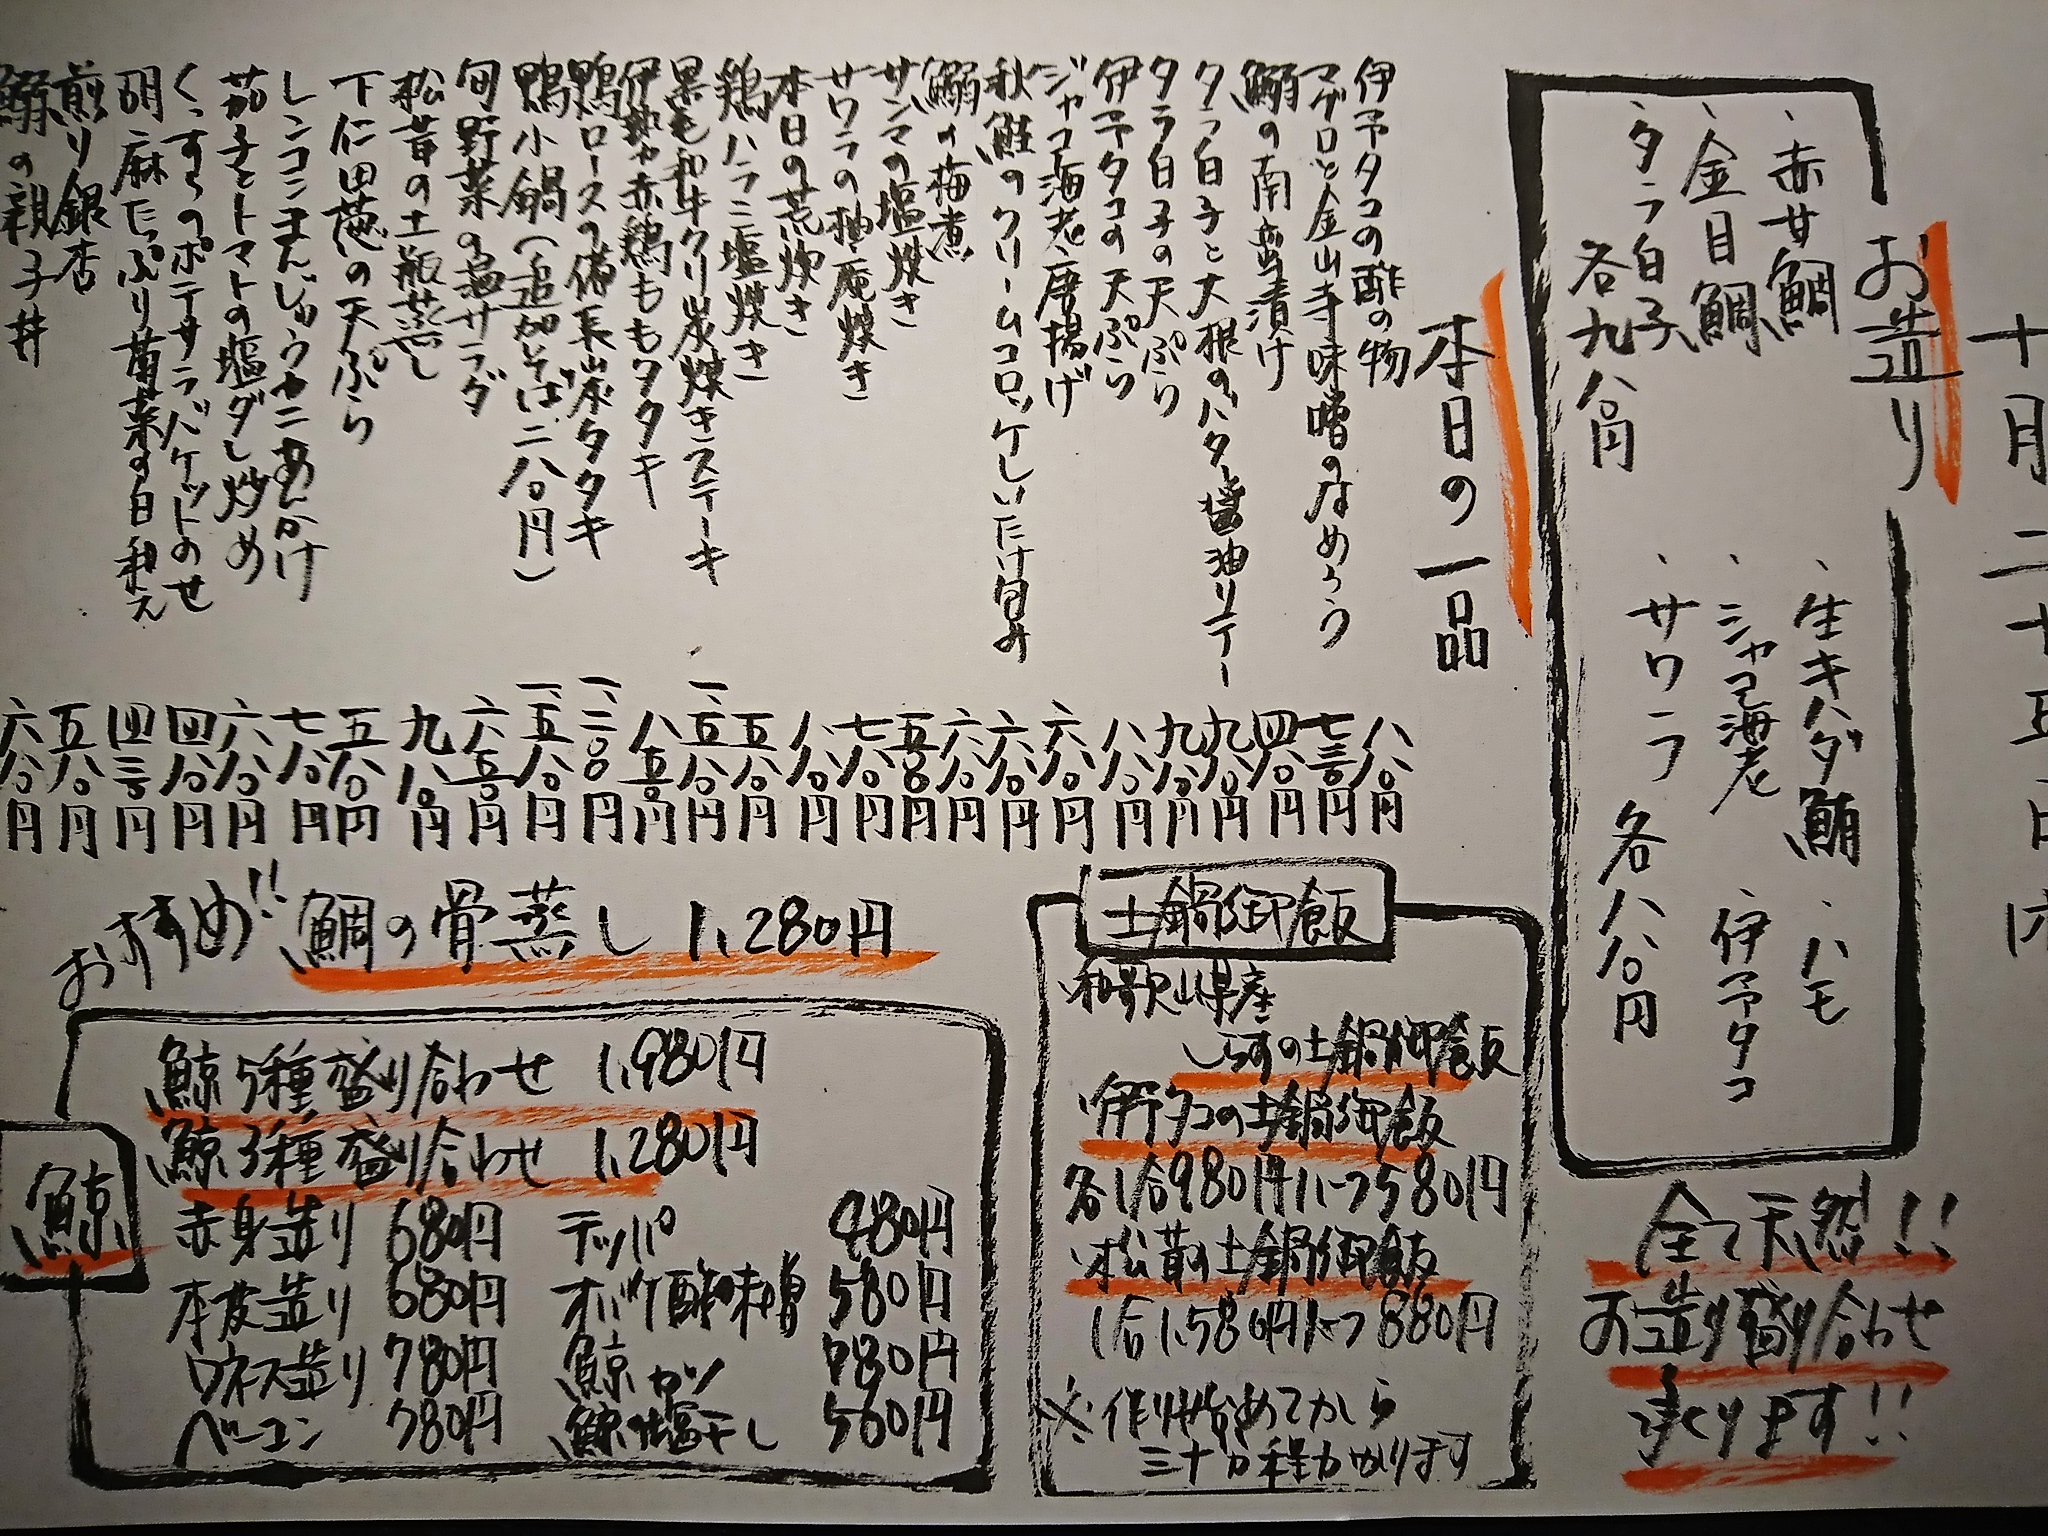 十月二十五日
お造り
、赤甘鯛
、金目鯛
、タラ白子
各九八〇円
、生キハダ鮪
、ハモ
、シャコ海老
、伊予タコ
、サワラ
各八八〇円
全て天然!!
お造り盛り合わせ
承ります!!
本日の一品
伊予タコの酢の物 八八〇円
マグロと金山寺味噌のなめろう 七三〇円
鰯の南蛮漬け 四八〇円
タラ白子と大根のバター醤油ソテー 九八〇円
タラ白子の天ぷら 九八〇円
伊予タコの天ぷら 八八〇円
ジャコ海老唐揚げ 六八〇円
秋鮭のクリームコロッケしいたけ包み 六八〇円
鰯の梅煮 六八〇円
サンマの塩焼き 五八〇円
サワラの柚庵焼き 七八〇円
本日の荒炊き 八八〇円
鶏ハラミ塩焼き 五八〇円
黒毛和牛クリ炭焼きステーキ 一、五八〇円
伊勢赤鶏ももタタキ 八五〇円
鴨ロースの備長炭タタキ 一、二〇〇円
鴨小鍋(追加そば二八〇円) 一、五八〇円
旬野菜の温サラダ 六五〇円
松茸の土瓶蒸し 九八〇円
下仁田葱の天ぷら 五八〇円
レンコンまんじゅうカニあんかけ 七八〇円
茄子とトマトの塩ダレ炒め 六八〇円
くんすうのポテサラバケットのせ 四八〇円
胡麻たっぷり菊菜の白和え 四三〇円
煎り銀杏 五八〇円
鰯の親子丼 六八〇円
土鍋御飯
、和歌山県産
しらすの土鍋御飯
、伊予タコの土鍋御飯
各1合980円ハーフ580円
、松茸の土鍋御飯
1合1,580円ハーフ880円
※作り始めてから
三十分程かかります
おすすめ!! 鯛の骨蒸し 1,280円
鯨
鯨5種盛り合わせ 1,980円
鯨3種盛り合わせ 1,280円
赤身造り 680円
本皮造り 680円
ウネス造り 780円
ベーコン 780円
テッパ 480円
オバケ酢味噌 580円
鯨カツ 780円
鯨塩干し 560円